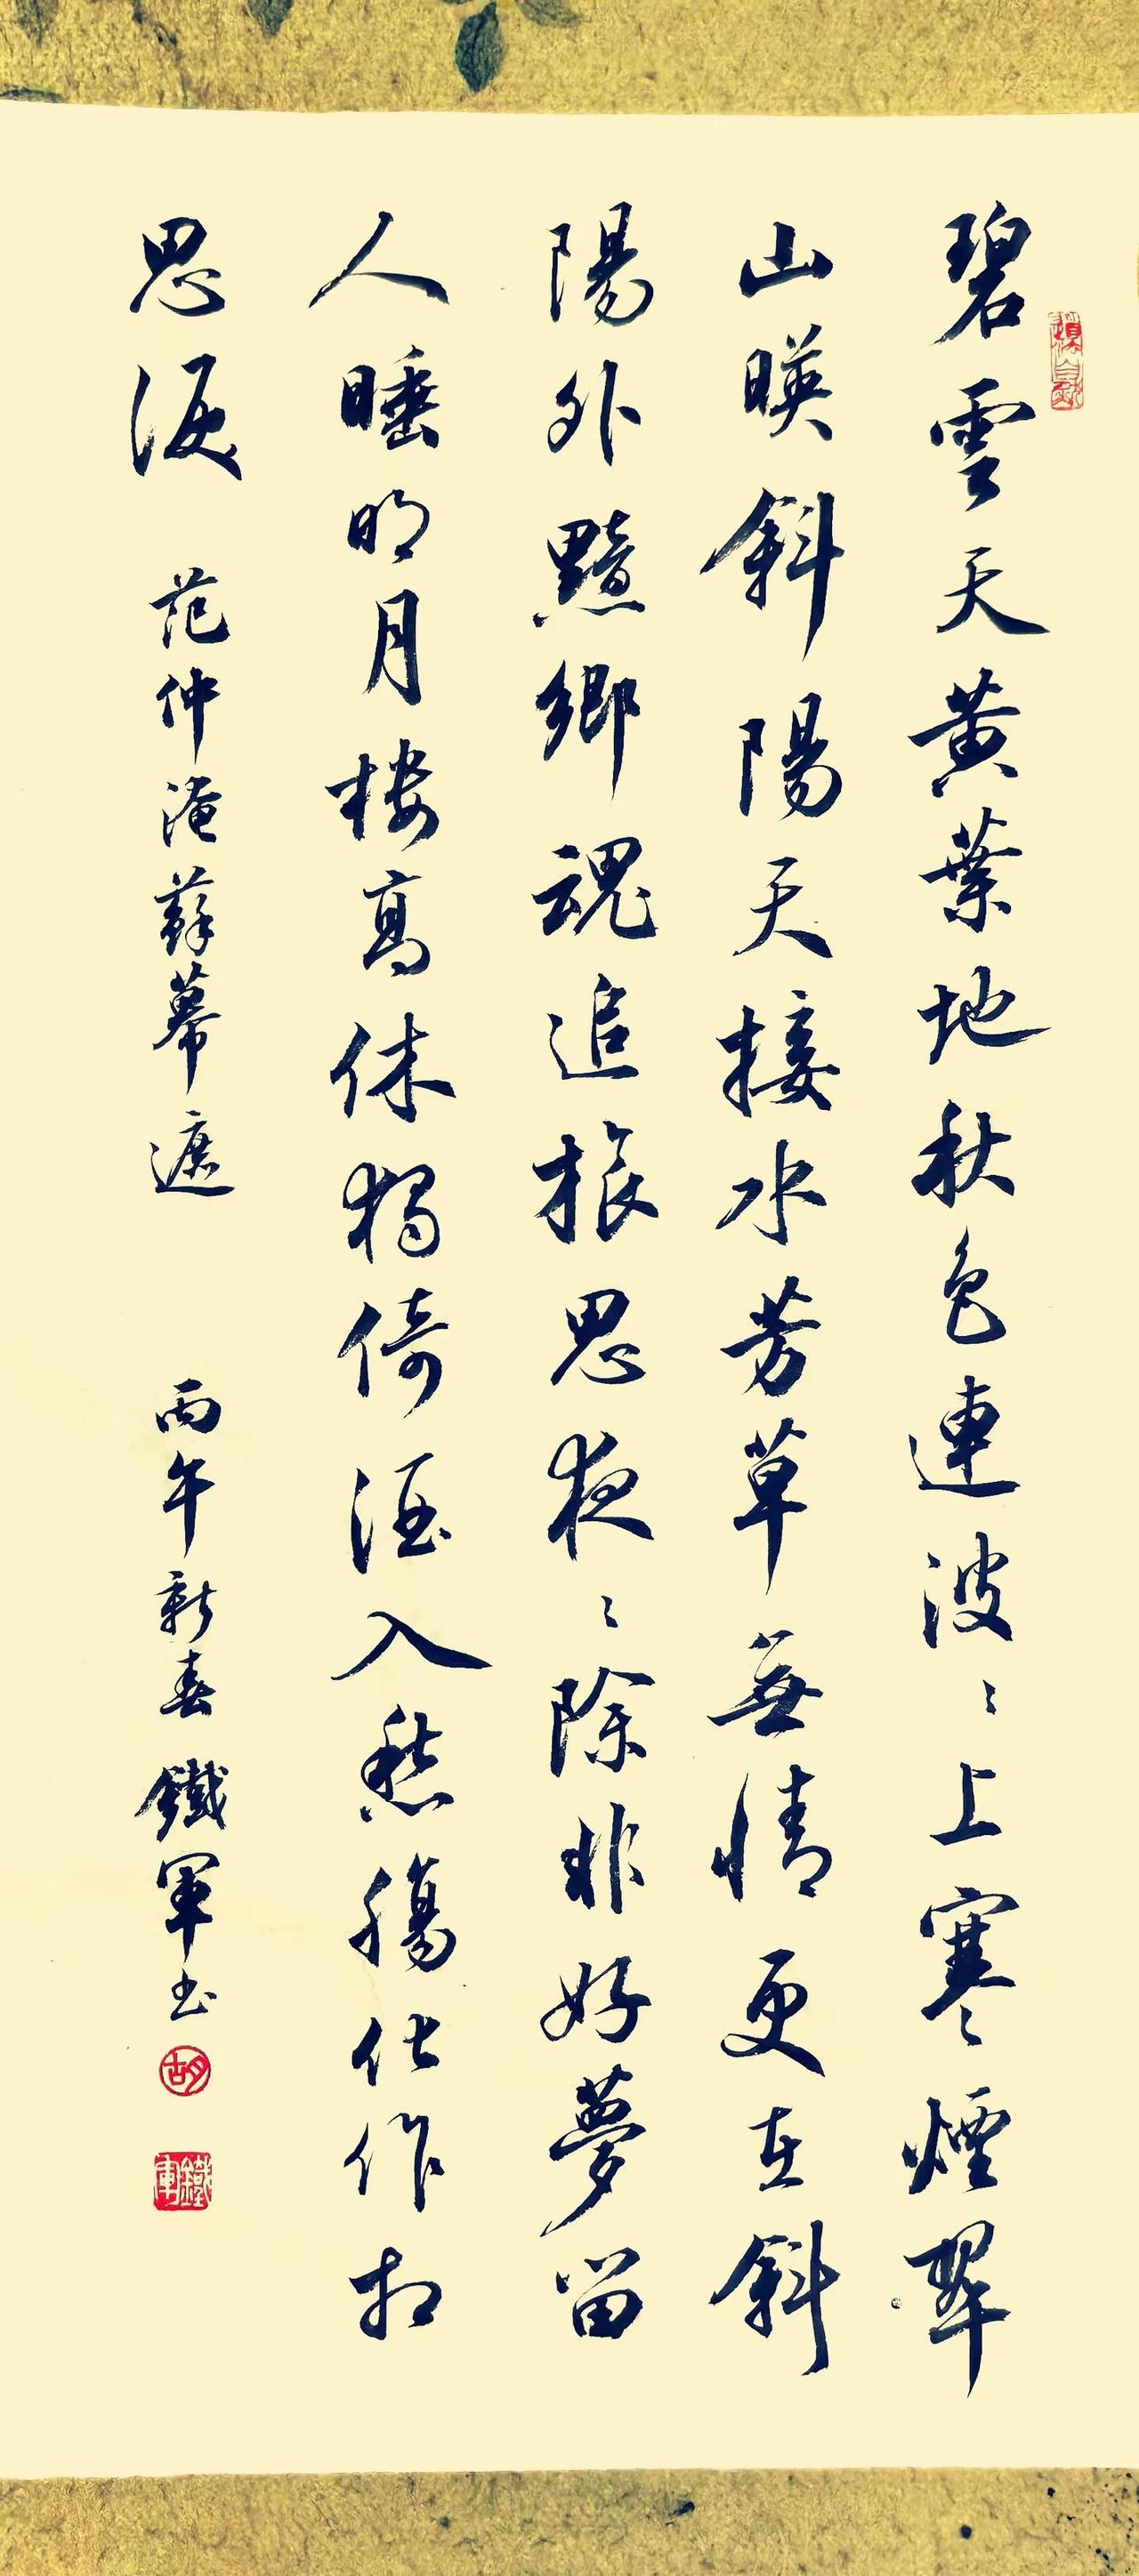 碧雲天黃葉地秋色連波〻上寒〻煙翠
山暎斜陽天接水芳草無情更在斜
陽外黯鄉魂追旅思夜〻除非好夢留
人睡明月樓高休獨倚酒入愁腸化作相
思淚 范仲淹蘇幕遮 丙午新春 鐵軍书
胡
鐵軍